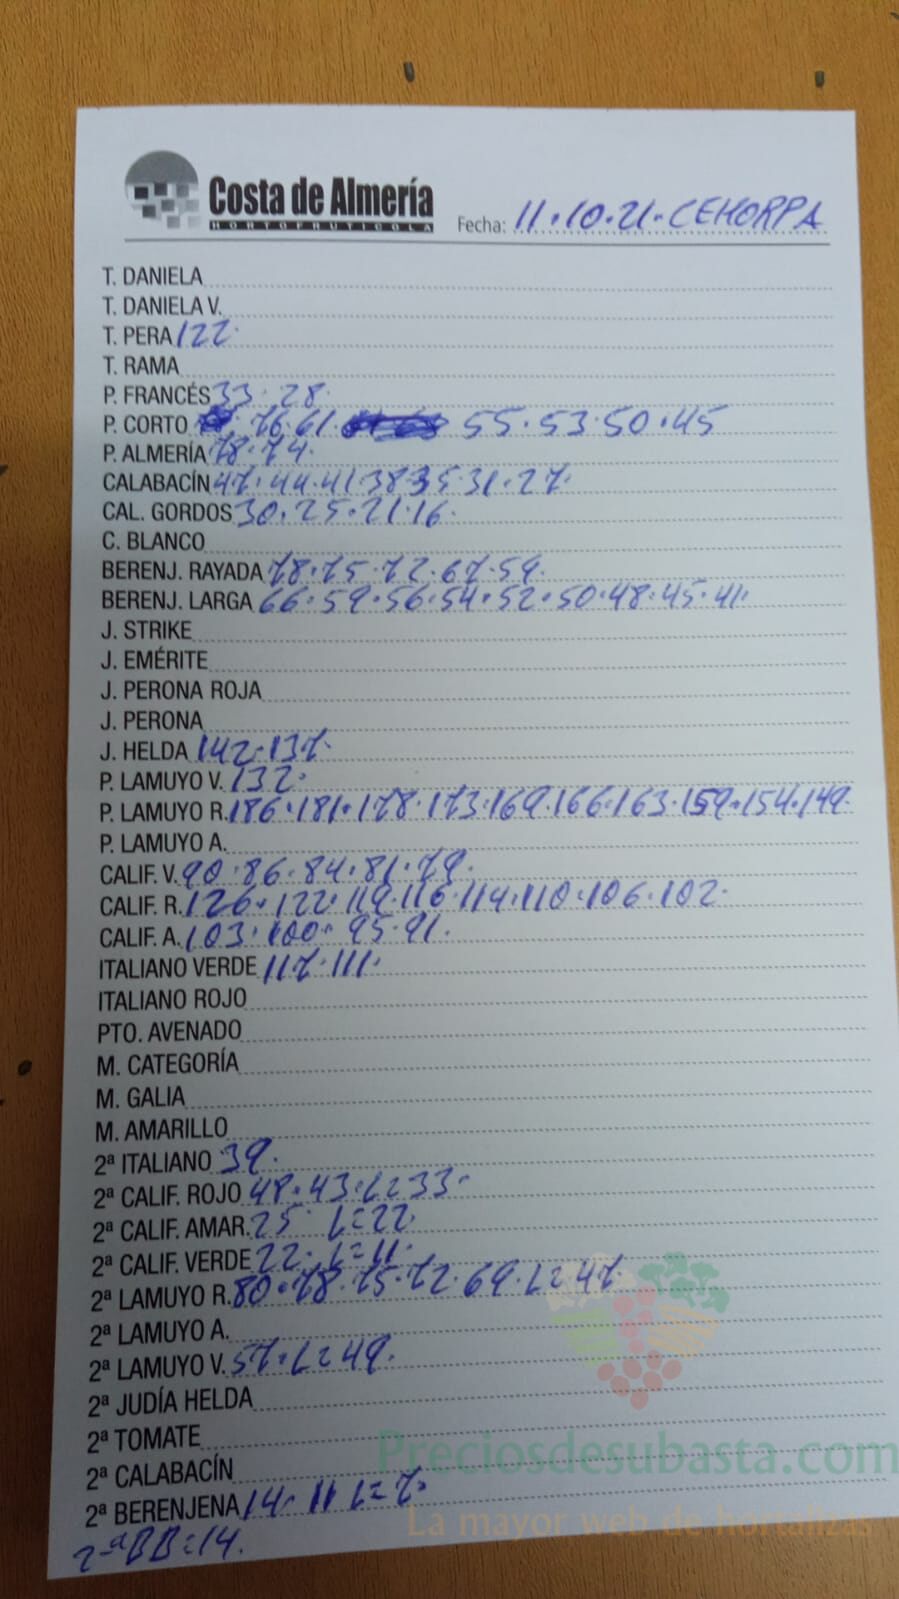 Costa de Almería
HORTOFRUTICOLA
Fecha: 11.10.21. CEHORPA
T. DANIELA
T. DANIELA V.
T. PERA 122.
T. RAMA
P. FRANCÉS 33. 28.
P. CORTO 76. 61. 55. 53. 50. 45
P. ALMERÍA 78. 74.
CALABACÍN 47. 44. 41. 38. 35. 31. 27.
CAL. GORDOS 30. 25. 21. 16.
C. BLANCO
BERENJ. RAYADA 78. 75. 72. 67. 59.
BERENJ. LARGA 66. 59. 56. 54. 52. 50. 48. 45. 41.
J. STRIKE
J. EMÉRITE
J. PERONA ROJA
J. PERONA
J. HELDA 142. 137.
P. LAMUYO V. 132.
P. LAMUYO R. 186. 181. 178. 173. 169. 166. 163. 159. 154. 149.
P. LAMUYO A.
CALIF. V. 90. 86. 84. 81. 79.
CALIF. R. 126. 122. 119. 116. 114. 110. 106. 102.
CALIF. A. 103. 100. 95. 91.
ITALIANO VERDE 117. 111.
ITALIANO ROJO
PTO. AVENADO
M. CATEGORÍA
M. GALIA
M. AMARILLO
2ª ITALIANO 39.
2ª CALIF. ROJO 48. 43. L=33.
2ª CALIF. AMAR. 25 L=22
2ª CALIF. VERDE 22. L=11.
2ª LAMUYO R. 80. 78. 75. 72. 69. L=47
2ª LAMUYO A.
2ª LAMUYO V. 57. L=49.
2ª JUDÍA HELDA
2ª TOMATE
2ª CALABACÍN
2ª BERENJENA 14. 11 L=7.
2ªBB=14.
Preciosdesubasta.com
La mayor web de hortalizas